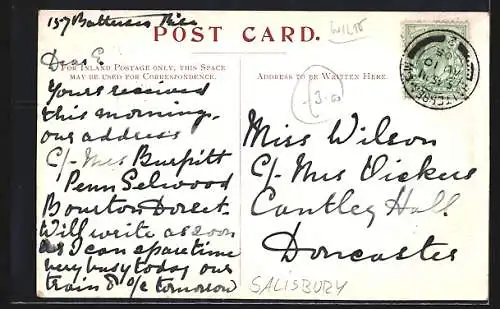 157 Battersea Rise
POST CARD.
WILTS
FOR INLAND POSTAGE ONLY, THIS SPACE
MAY BE USED FOR CORRESPONDENCE.
ADDRESS TO BE WRITTEN HERE.
Dear E.
Yours received
this morning.
our address
C/- Mrs Burpitt
Penn Selwood
Bourton Dorset.
Will write as soon
as I can spare time
very busy today our
train &c tomorrow
3.
Miss Wilson
C/- Mrs Vickers
Cantley Hall
Doncaster
SALISBURY